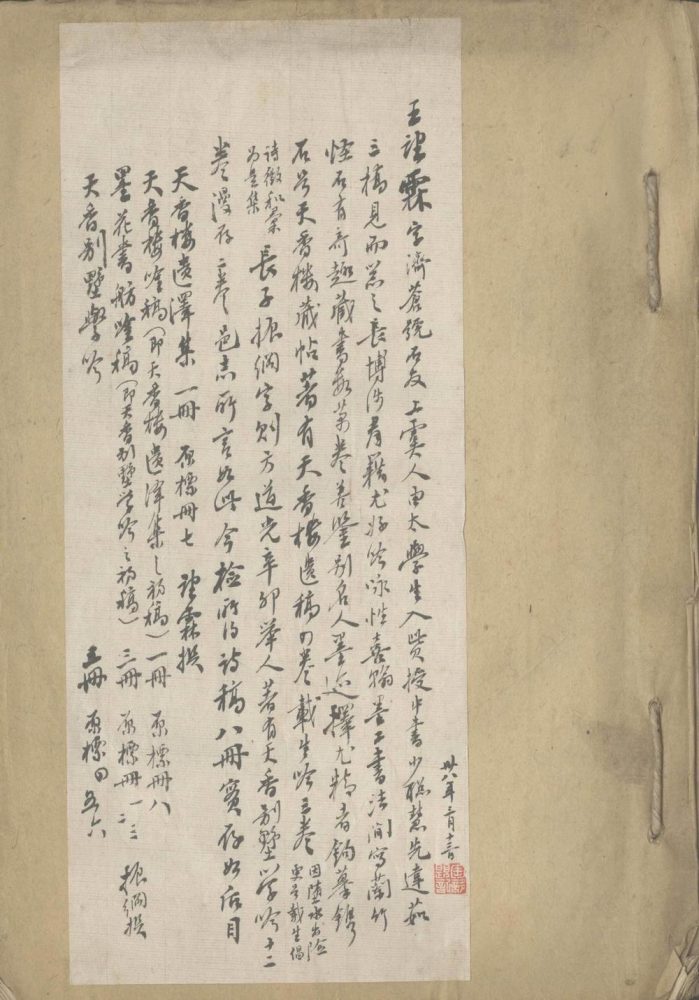 王望霖字濟蒼號石友上虞人由太學生入貲授中書少聰慧先達茹
三樵見而器之長博涉群籍尤好吟咏性喜翰墨工書法間寫蘭竹
怪石有奇趣藏書數萬卷善鑒別名人墨迹擇尤精者鈎摹鐫
石曰天香樓藏帖著有天香樓遺稿四卷載生吟三卷
因墮水出險
更號載生偈
詩徵和彙
為是集
長子振綱字則方道光辛卯舉人著有天香別墅學吟十二
卷漫存二卷邑志所言如此今檢所得詩稿八冊實存如后目
天香樓遺澤集 一冊 原標冊七 望霖撰
天香樓吟稿(即天香樓遺澤集之初稿)一冊 原標冊八
墨花書舫吟稿(即天香別墅學吟之初稿) 三冊 原標冊一二三
天香別墅學吟 三冊 原標四五六
振綱撰
卅八年三月十三日